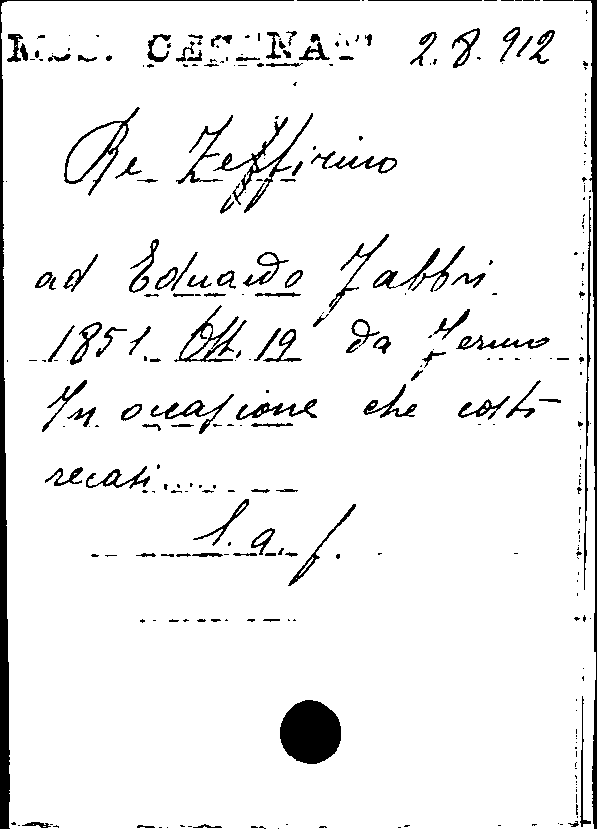 MSS. CESENATI 2.8.912
Re Zeffirino
ad Eduardo Fabbri
1851. Ott. 19 da Fermo
In occasione che costì
recasi.....
l. a. f.